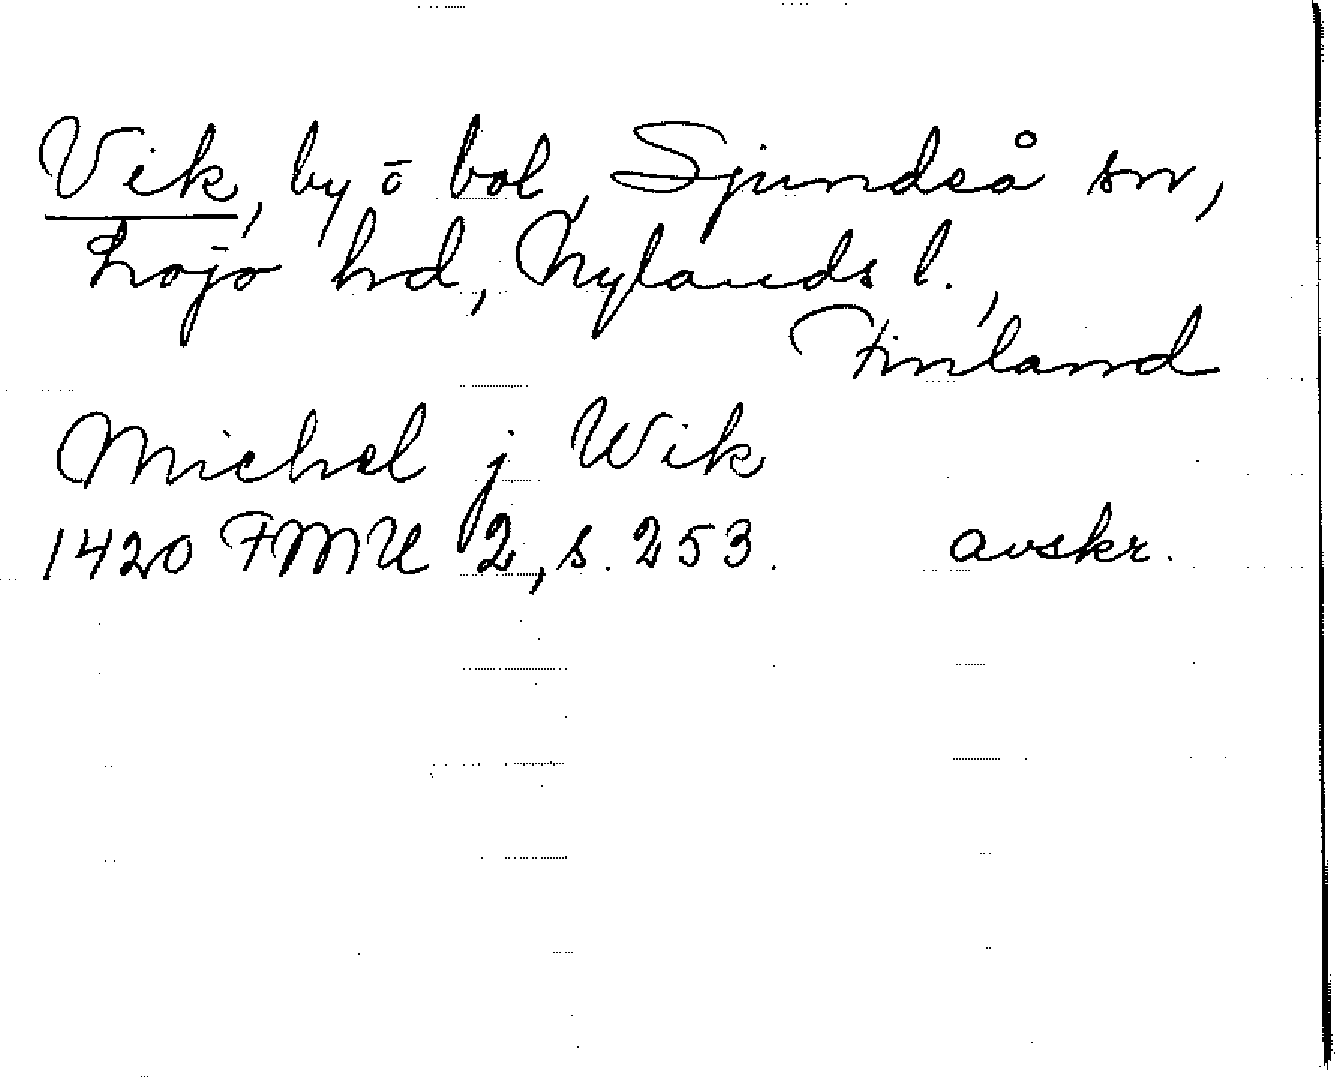 Vik, by ō bol, Sjundeå sn,
Lojo hd, Nylands l.,
Finland
Michel j Wik
1420 FMU 2, s. 253. avskr.